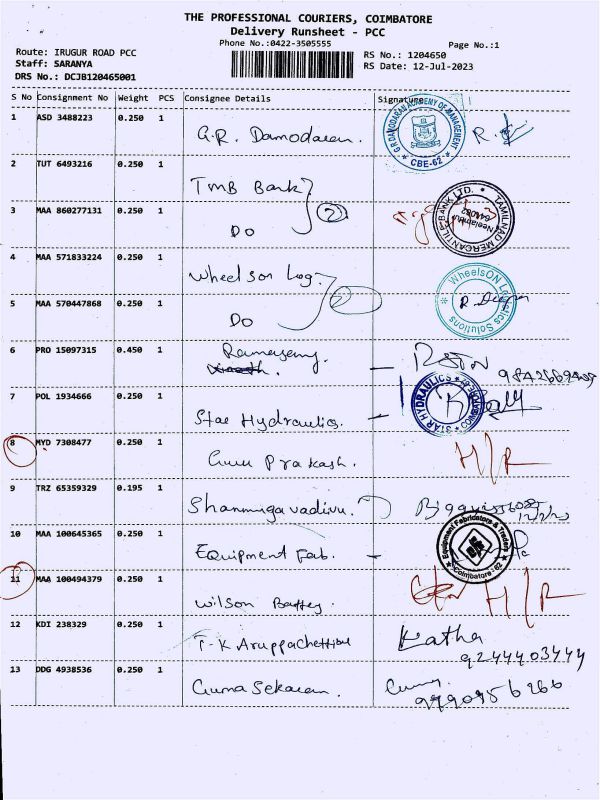 THE PROFESSIONAL COURIERS, COIMBATORE
Delivery Runsheet - PCC
Phone No.:0422-3505555
Page No.:1
Route: IRUGUR ROAD PCC
RS No.: 1204650
Staff: SARANYA
RS Date: 12-Jul-2023
DRS No.: DCJB120465001
S No Consignment No Weight PCS Consignee Details Signature
1 ASD 3488223 0.250 1 G.R. Damodaran. G R DAMODARAN ACADEMY OF MANAGEMENT CBE-62
2 TUT 6493216 0.250 1 TMB Bank
3 MAA 860277131 0.250 1 Do 2 TAMILNAD MERCANTILE BANK LTD. Neelambur
4 MAA 571833224 0.250 1 Wheelson Log.
5 MAA 570447868 0.250 1 Do 2 WheelsON Logistics Solutions
6 PRO 15097315 0.450 1 Ramasamy
7 POL 1934666 0.250 1 Star Hydraulics. STAR HYDRAULICS COIMBATORE
8 MYD 7308477 0.250 1 Guru Prakash. H/R
9 TRZ 65359329 0.195 1 Shanmigavadivu.
10 MAA 100645365 0.250 1 Equipment Fab. Equipment Fabricators & Traders Coimbatore - 62
11 MAA 100494379 0.250 1 Wilson Battey H/R
12 KDI 238329 0.250 1 T-K Aruppachettiar Katha
9244403444
13 DDG 4938536 0.250 1 Guna Sekaran.